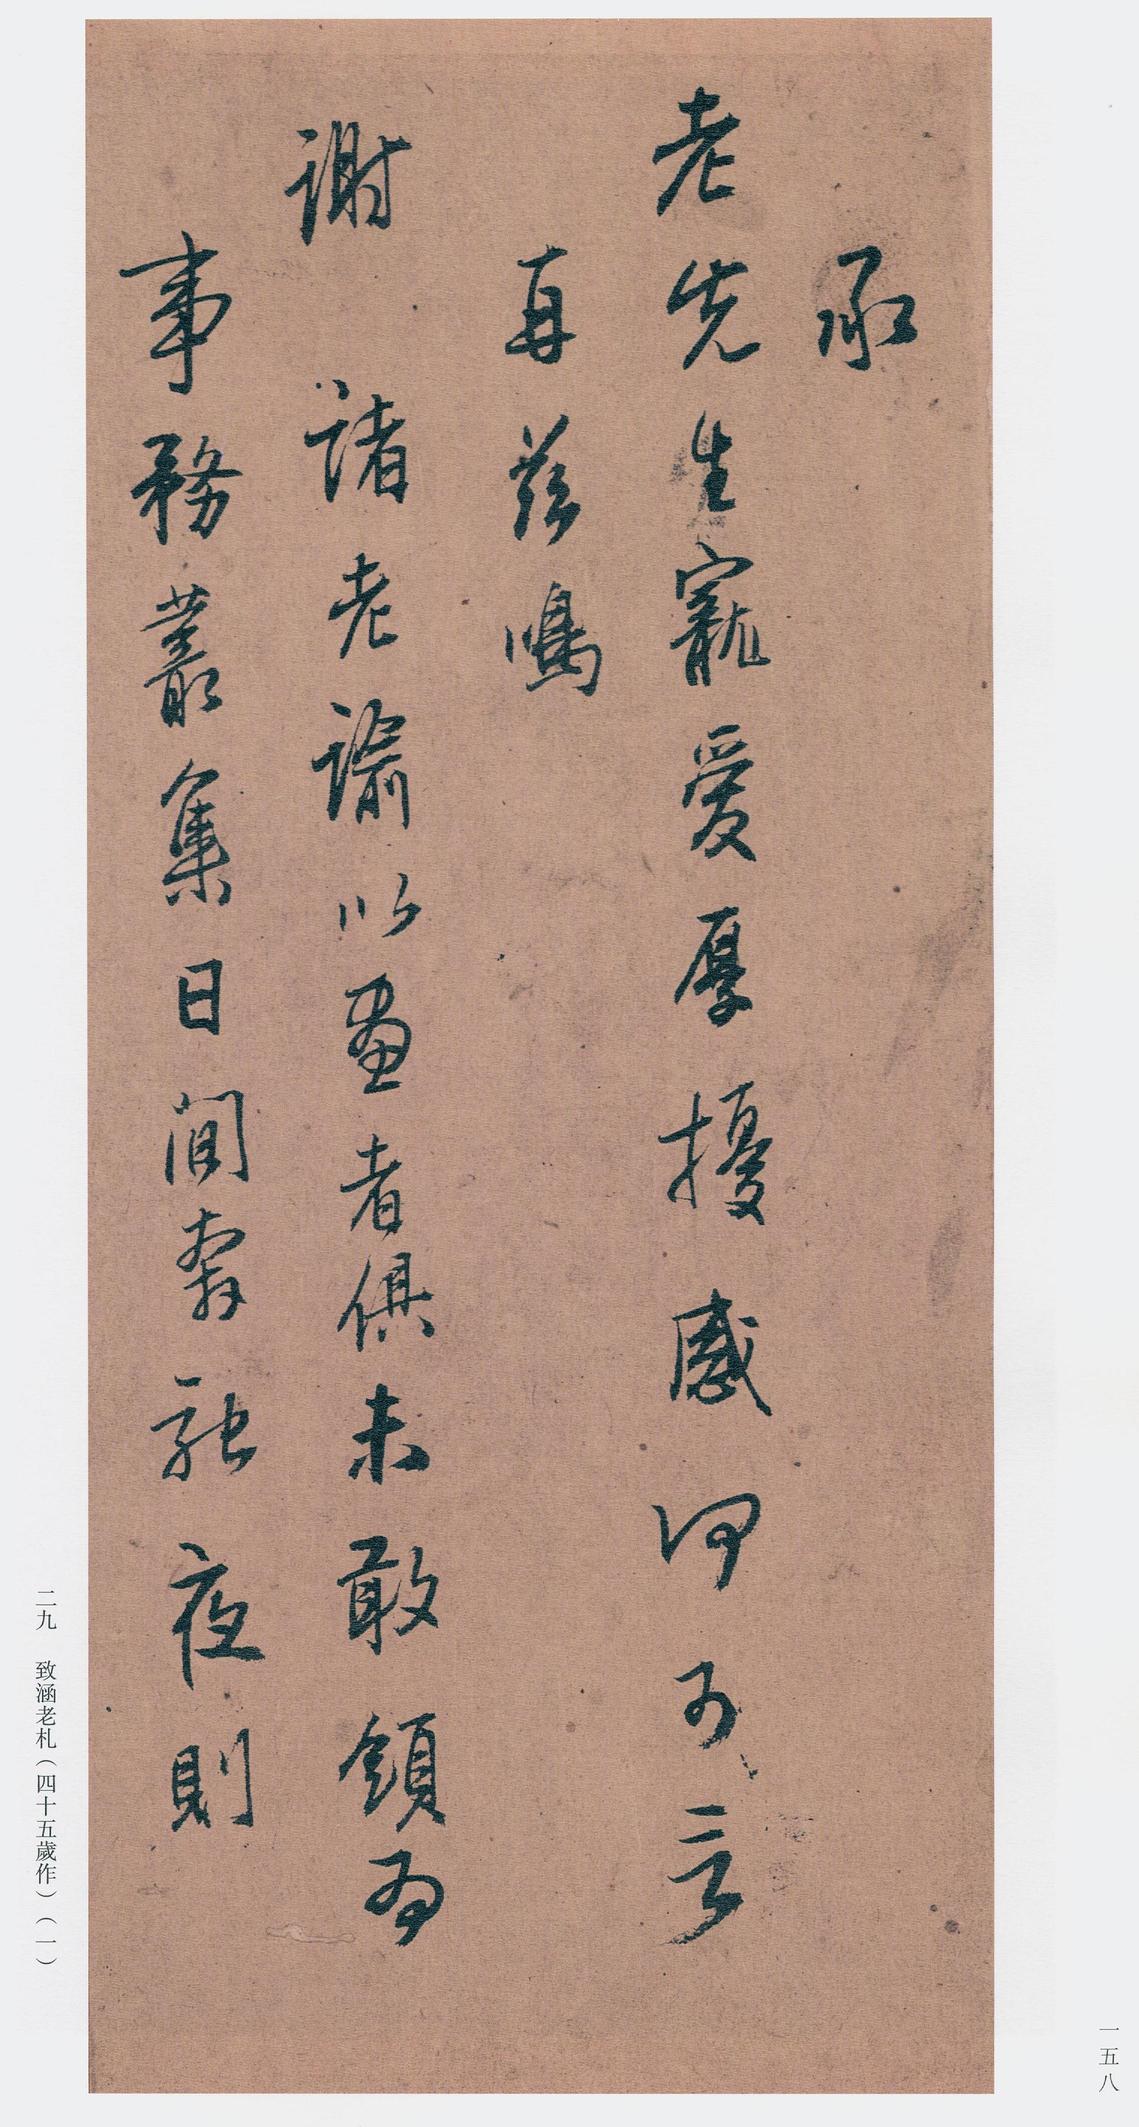 承
老先生寵愛厚擾感何可言
再茲鳴
謝 諸老諭以畫者俱未敢領為
事務叢集日間奔馳夜則
二九 致涵老札（四十五歲作）（一）
一五八